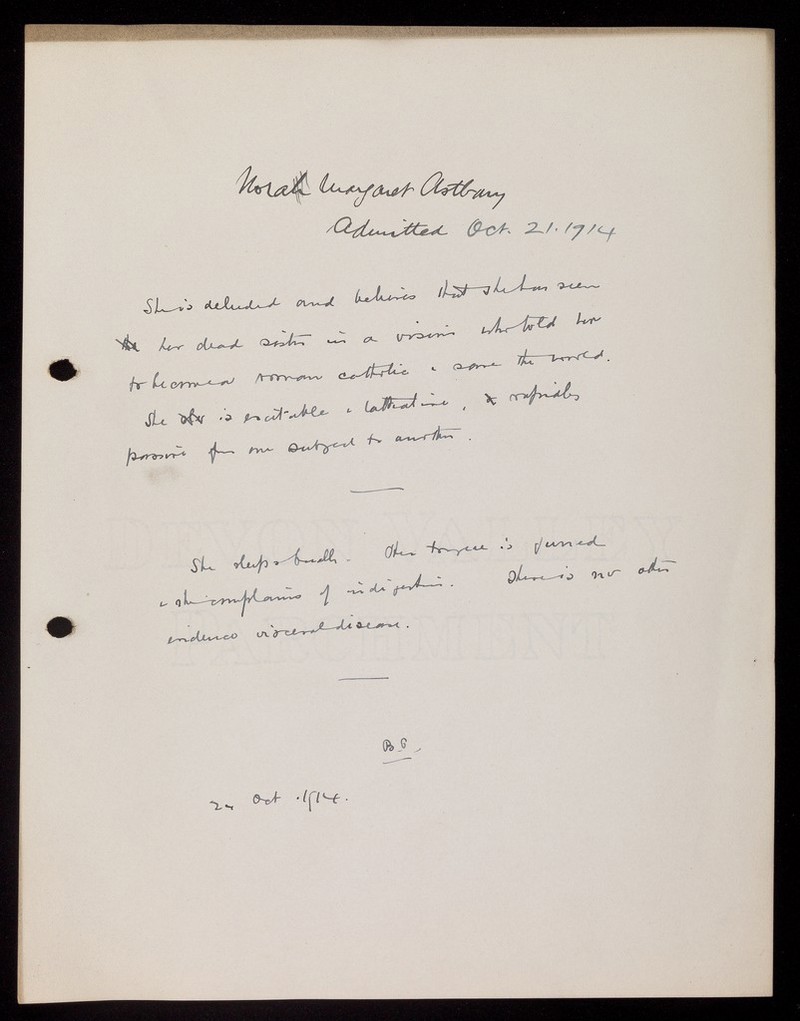 Nora Margaret Astbury
Admitted Oct. 21. 1914
She is deluded and believes that she has seen
her dead sister in a vision who told her
to become a roman catholic & save the world.
She is excitable & talkative, & rapidly
passing from one subject to another.
She sleeps badly. Her tongue is furred
& she complains of indigestion. There is no other
evidence visceral disease.
24 Oct. 1914.
DEVON VALLEY
PARCHMENT